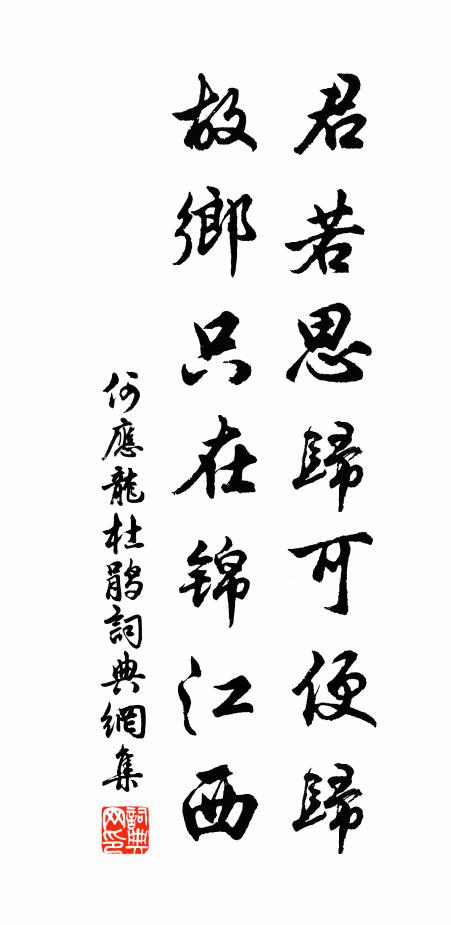 君若思歸可便歸
故鄉只在錦江西
何應龍杜鵑詞典網集
詞典网印